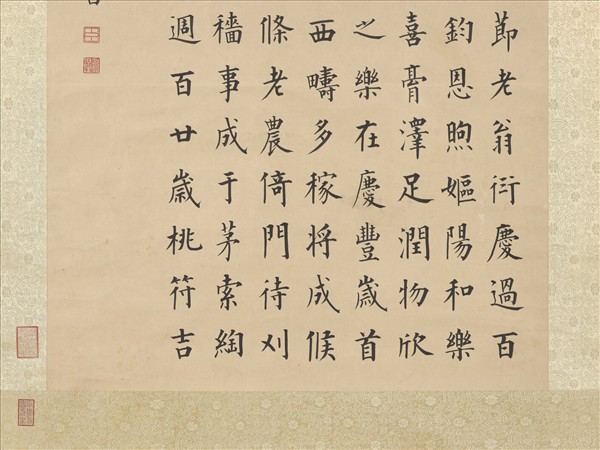 節老翁衍慶過百
鈞恩煦嫗陽和樂
喜膏澤足潤物欣
之樂在慶豐歲首
西疇多稼將成候
條老農倚門待刈
穡事成于茅索綯
週百廿歲桃符吉